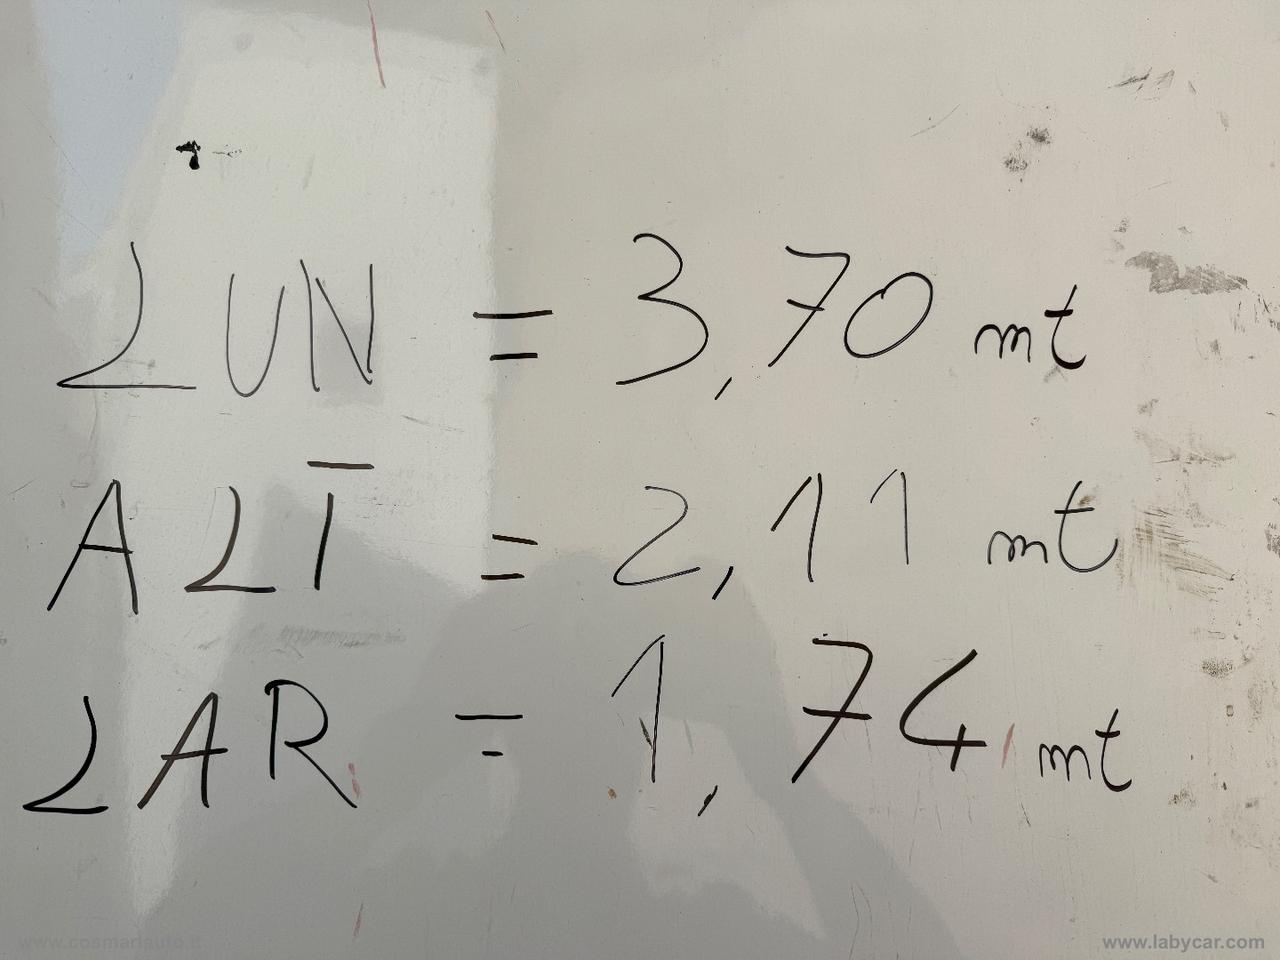 LUN = 3,70 mt
ALT = 2,11 mt
LAR = 1,74 mt
www.cosmariauto.it
www.labycar.com